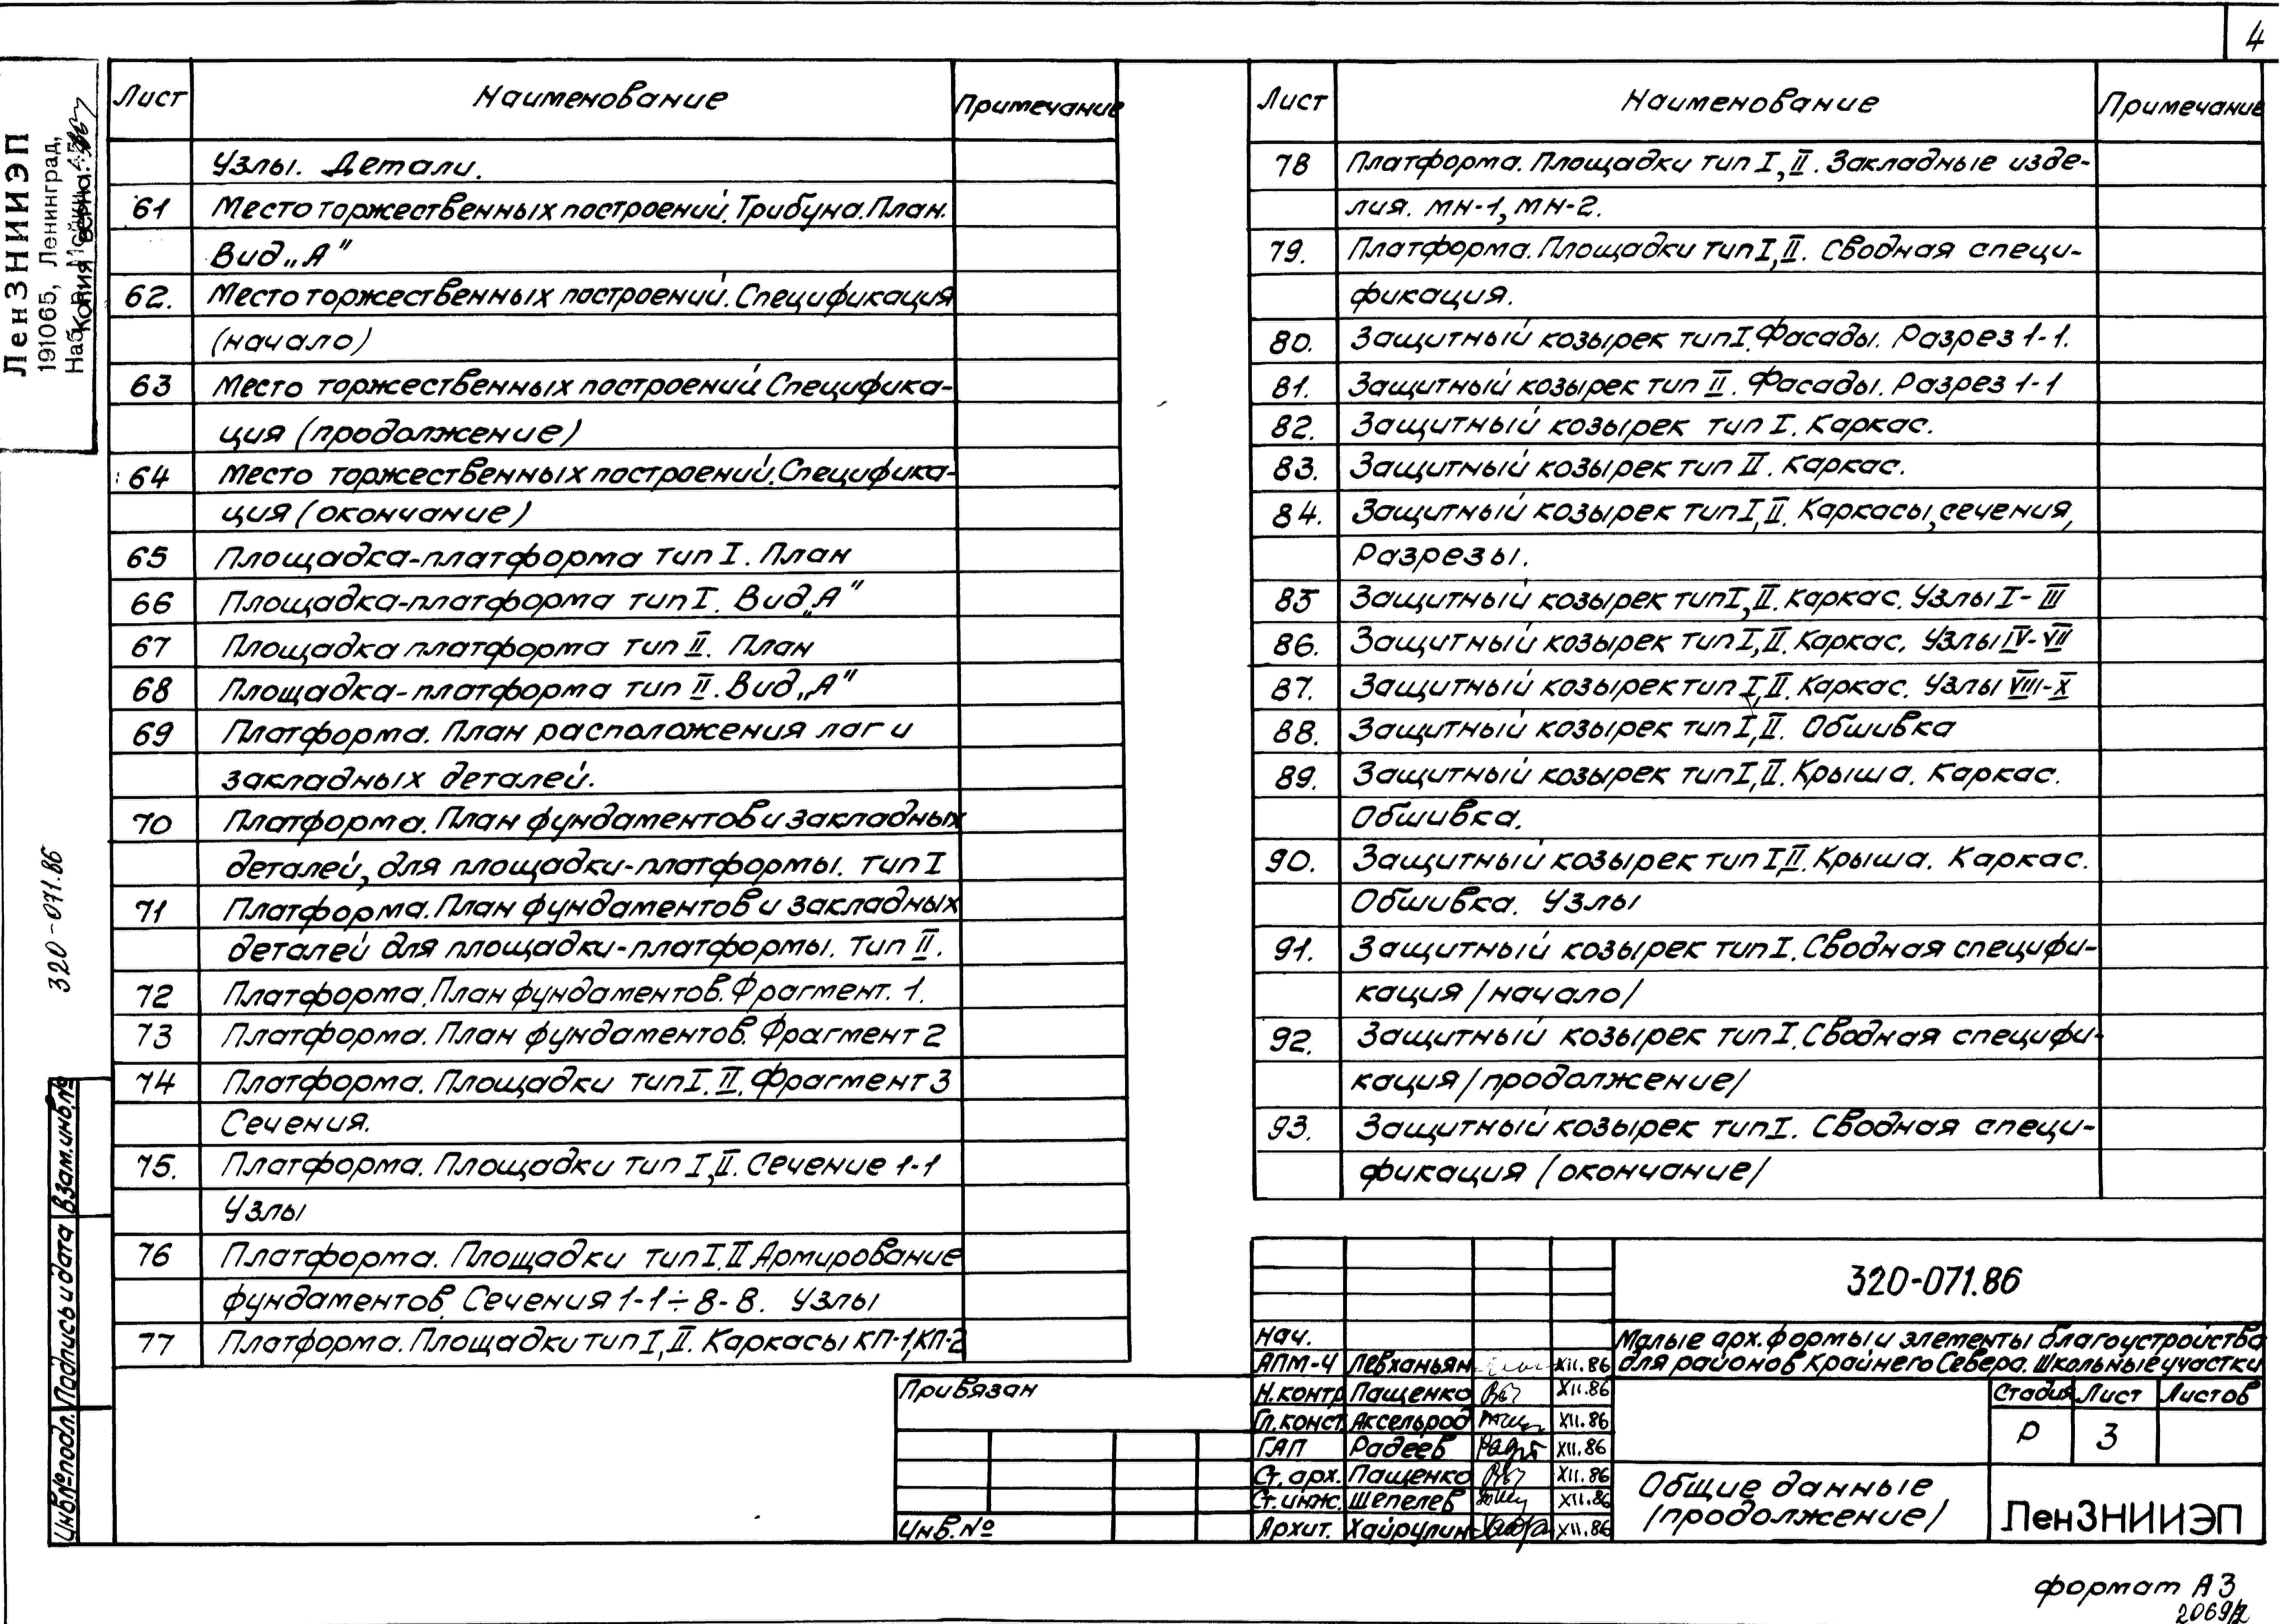 4
Лист Наименование Примечание
Узлы. Детали.
61 Место торжественных построений. Трибуна. План.
Вид „А"
62. Место торжественных построений. Спецификация
(начало)
63 Место торжественных построений. Специфика-
ция (продолжение)
64 Место торжественных построений. Специфика-
ция (окончание)
65 Площадка-платформа тип I. План
66 Площадка-платформа тип I. Вид „А"
67 Площадка платформа тип II. План
68 Площадка-платформа тип II. Вид „А"
69 Платформа. План расположения лаг и
закладных деталей.
70 Платформа. План фундаментов и закладных
деталей, для площадки-платформы. тип I
71 Платформа. План фундаментов и закладных
деталей для площадки-платформы. Тип II.
72 Платформа. План фундаментов. Фрагмент. 1.
73 Платформа. План фундаментов. Фрагмент 2
74 Платформа. Площадки тип I. II. Фрагмент 3
Сечения.
75. Платформа. Площадки тип I, II. Сечение 1-1
Узлы
76 Платформа. Площадки тип I, II Армирование
фундаментов. Сечения 1-1÷8-8. Узлы
77 Платформа. Площадки тип I, II. Каркасы КП-1, КП-2
Лист Наименование Примечание
78 Платформа. Площадки тип I, II. Закладные изде-
лия. МН-1, МН-2.
79. Платформа. Площадки тип I, II. Сводная специ-
фикация.
80. Защитный козырек тип I. Фасады. Разрез 1-1.
81. Защитный козырек тип II. Фасады. Разрез 1-1
82. Защитный козырек тип I. Каркас.
83. Защитный козырек тип II. Каркас.
84. Защитный козырек тип I, II. Каркасы, сечения,
Разрезы.
85 Защитный козырек тип I, II. Каркас. Узлы I-III
86. Защитный козырек тип I, II. Каркас. Узлы IV-VII
87. Защитный козырек тип I, II. Каркас. Узлы VIII-X
88. Защитный козырек тип I, II. Обшивка
89. Защитный козырек тип I, II. Крыша. Каркас.
Обшивка.
90. Защитный козырек тип I, II. Крыша. Каркас.
Обшивка. Узлы
91. Защитный козырек тип I. Сводная специфи-
кация /начало/
92. Защитный козырек тип I. Сводная специфи-
кация /продолжение/
93. Защитный козырек тип I. Сводная специ-
фикация /окончание/
ЛенЗНИИЭП
191065, Ленинград,
Наб.
Копия верна:
320-071.86
Взам.инв.№
Подпись и дата
Инв.№подл.
Привязан
Инв.№
Нач.
АПМ-4 Левханьян XII.86
Н.контр Пащенко XII.86
Гл.конст Аксельрод XII.86
ГАП Радеев XII.86
Ст.арх. Пащенко XII.86
Ст.инж. Шепелев XII.86
Архит. Хайрулин XII.86
320-071.86
Малые арх. формы и элементы благоустройства
для районов Крайнего Севера. Школьные участки
Стадия Лист Листов
Р 3
Общие данные
/продолжение/
ЛенЗНИИЭП
формат А3